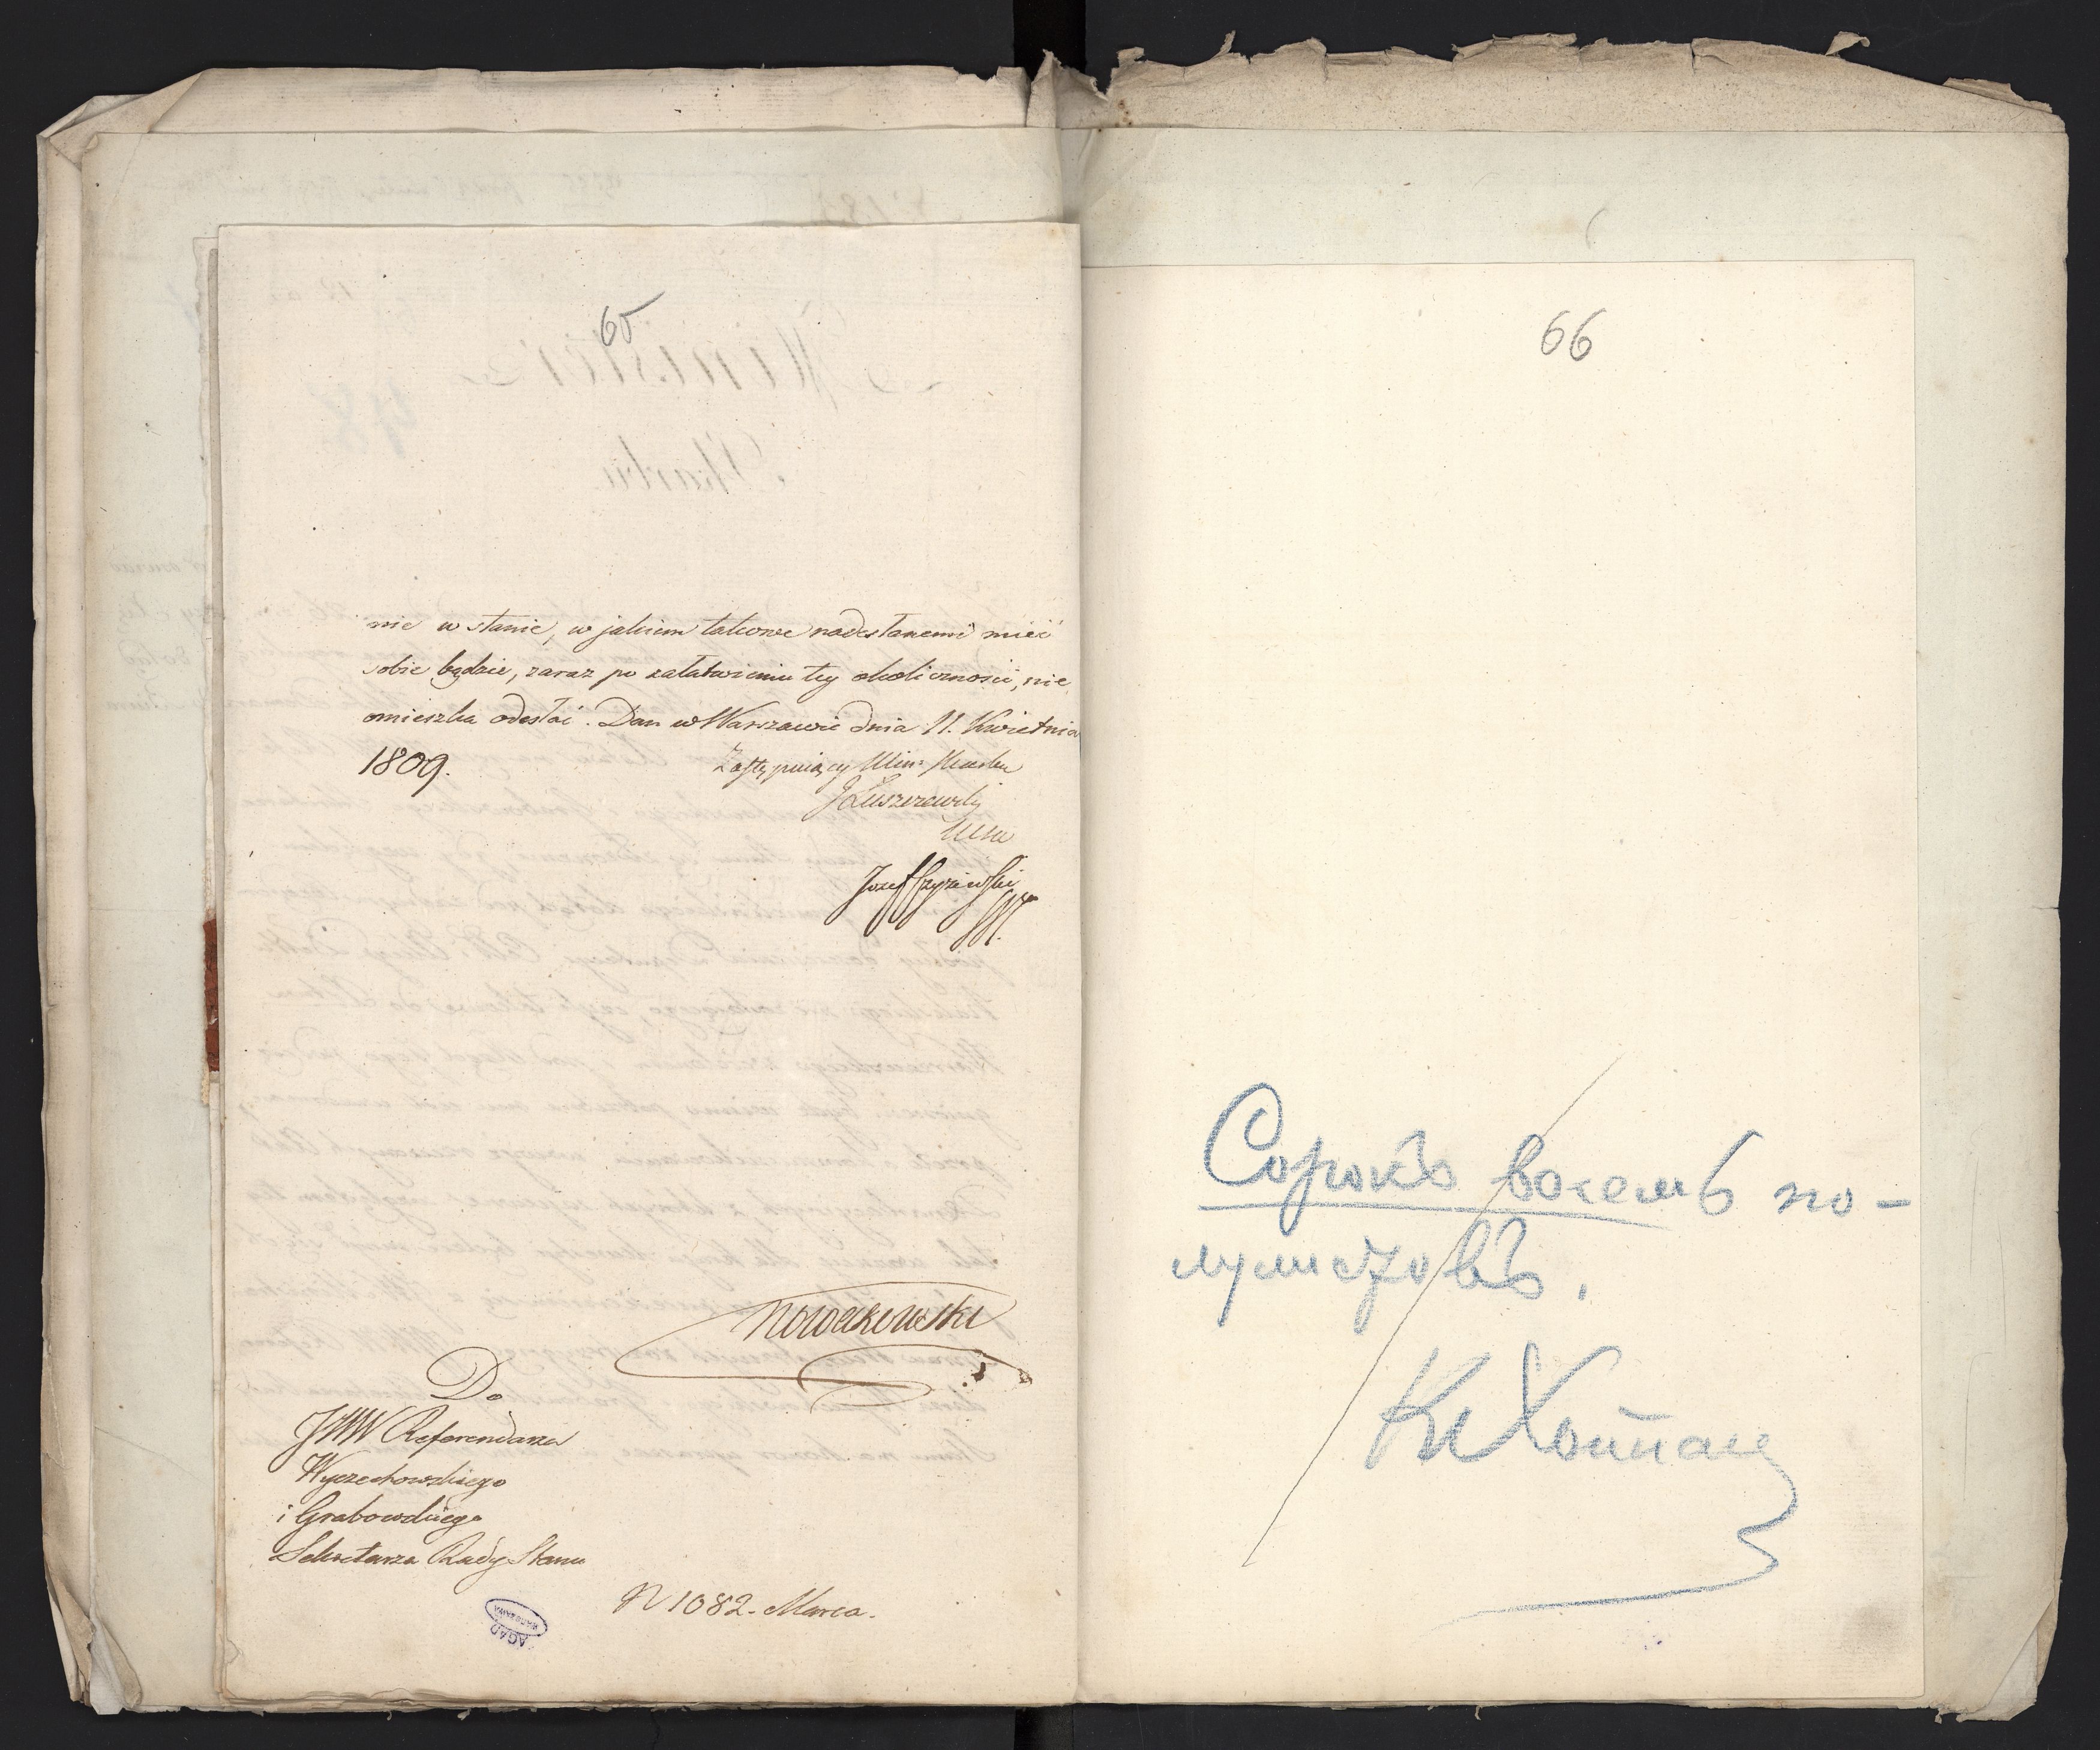 65
nie w stanie, w jakiem takowe nadesłanemi mieć
sobie będzie, zaraz po załatwieniu tey okoliczności, nie
omieszka odesłać. Dan w Warszawie dnia 11. Kwietnia
1809.
Zastępuiący Min: Skarbu
J Łuszczewski
Nowakowski
Do
JWW Referendarza
Wyczechowskiego
i Grabowskiego
Sekretarza Rady Stanu
N 1082. Marca.
AGAD
WARSZAWA
66
Сорокъ восемь по-
лулистовъ.